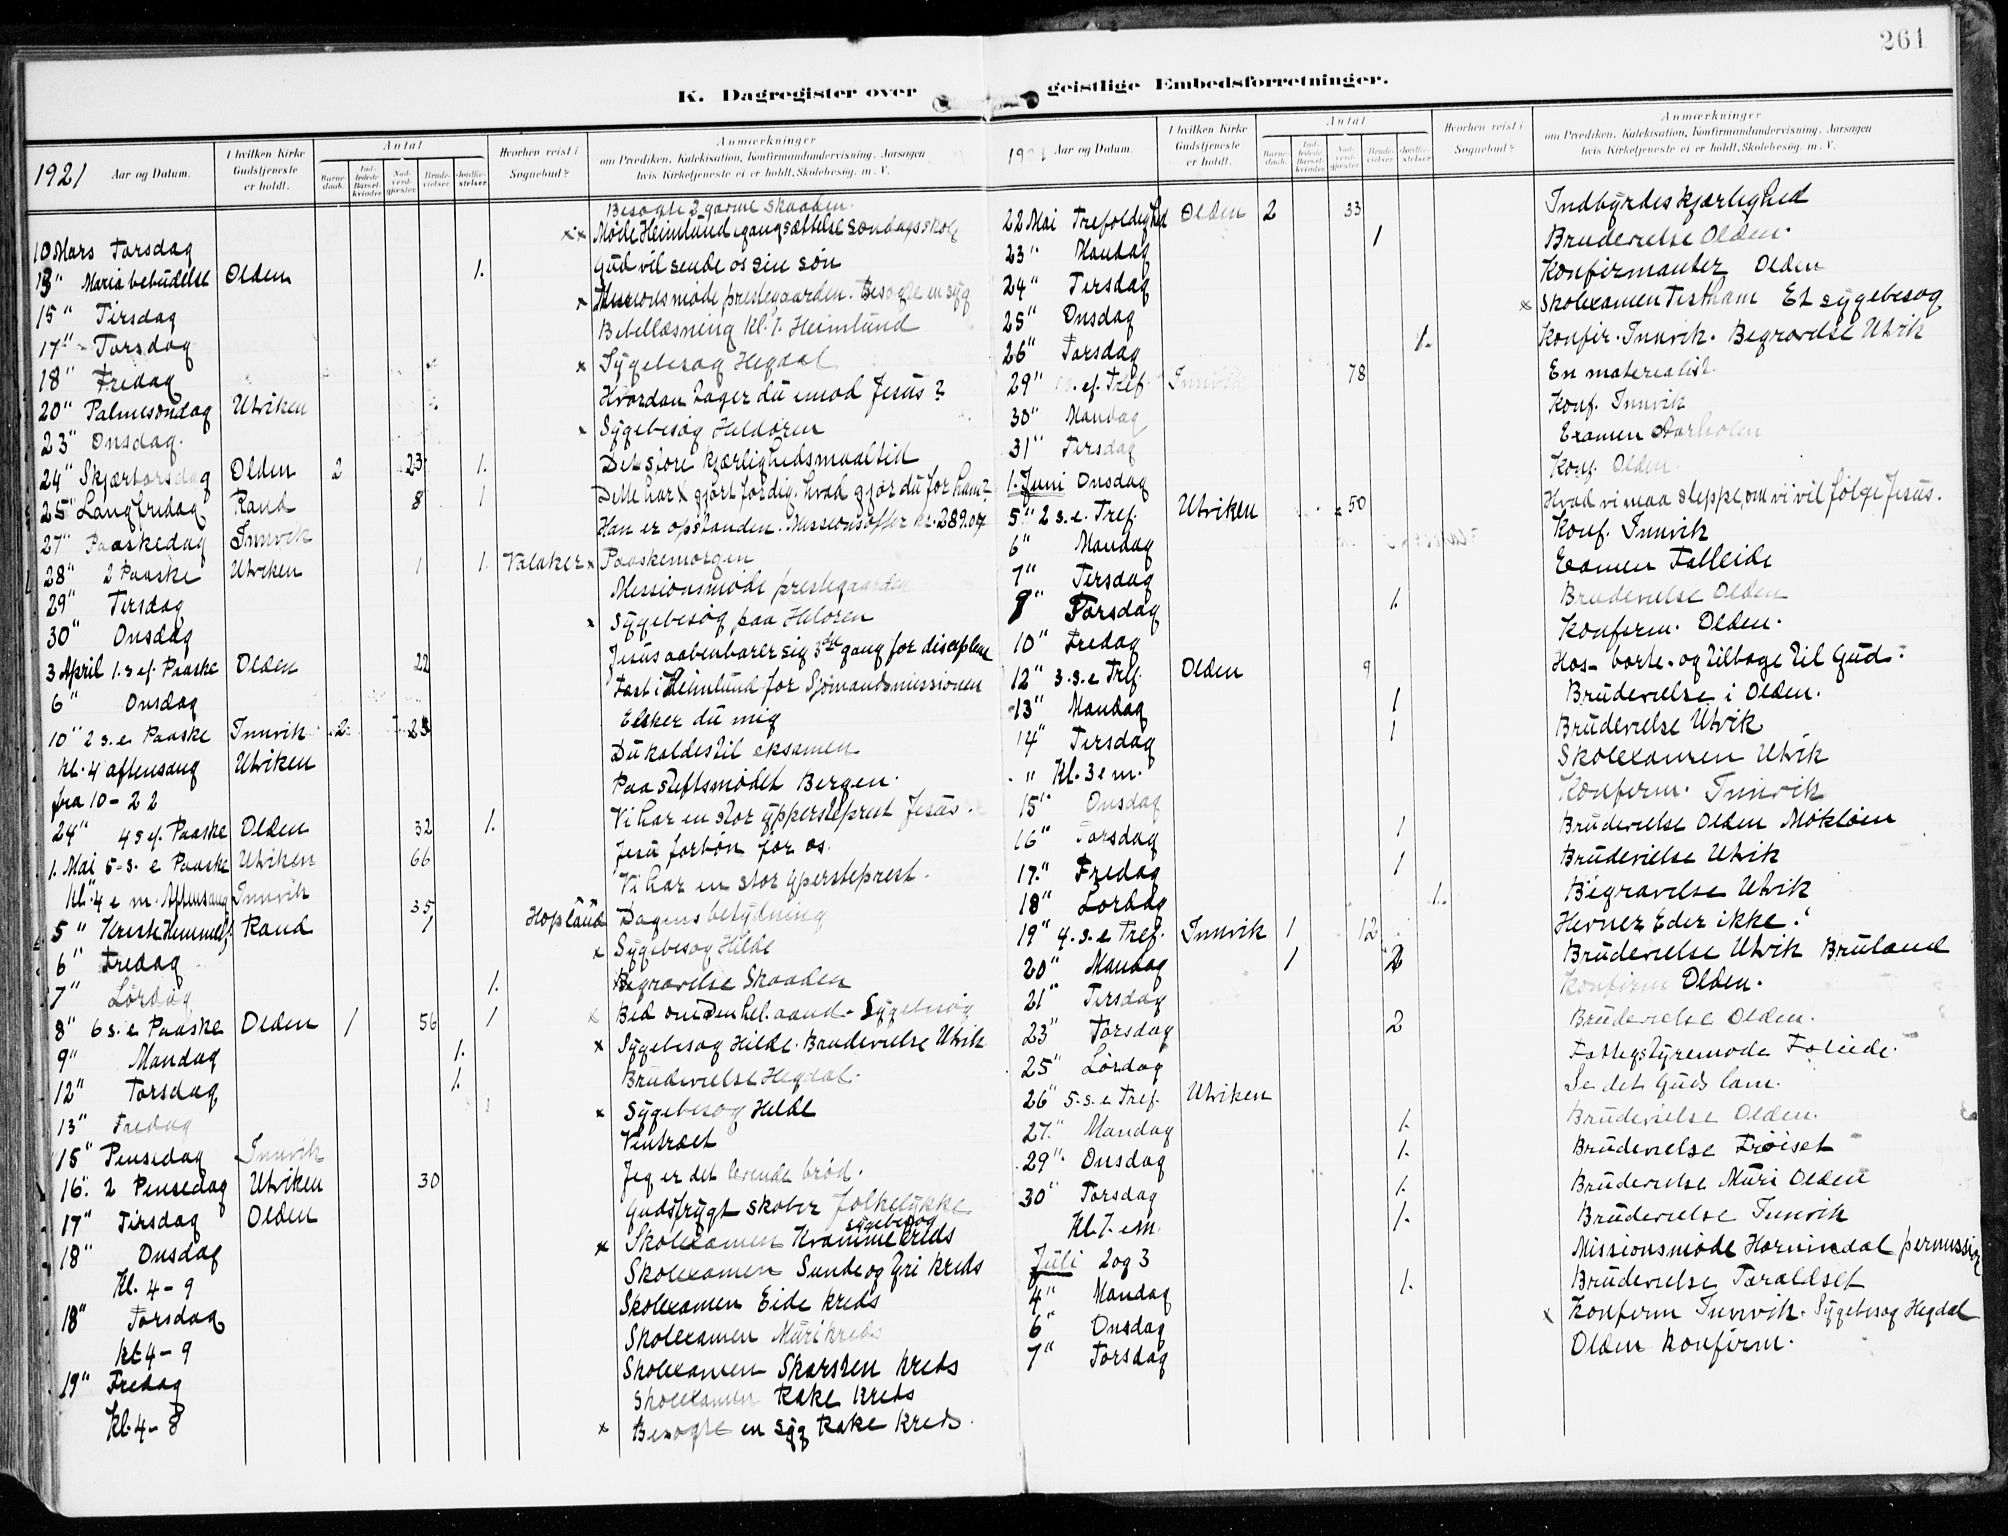 261
K. Dagregister over geistlige Embedsforretninger.
1921 Aar og Datum. I hvilken Kirke Gudstjeneste er holdt. Antal Barnedaab. Indledede Barselkvinder. Nadverdgjester. Brudevielser. Jordfæstelser. Hvorhen reist i Sognebud? Anmærkninger om Prædiken, Katekisation, Konfirmandundervisning, Aarsagen hvis Kirketjeneste ei er holdt, Skolebesøg, m. V.
Besøgte 2 gamle Skaaden.
10 Mars Torsdag xx Møde Heimlund igangsættelse søndagsskole
13" Maria bebudelse Olden 1. Gud vil sende os sin søn
15" Tirsdag x Missionsmøde prestegaarden. Besøgte en syg
17" Torsdag Bibellæsning kl. 7. Heimlund
18" Fredag x Sygebesøg Hegdal
20" Palmesøndag Utviken Hvordan tager du imod Jesus?
23" Onsdag. x Sygebesøg Heldøren
24" Skjærtorsdag Olden 2 23 1. Det store kjærlighedsmaaltid
25" Langfredag Rand 8 1 Dette har x gjort for dig. hvad gjør du for ham?
27" Paaskedag Innvik Han er opstanden. Missionsoffer kr. 289.07
28" 2 Paaske Utviken 1 1. Valaker x Paaskemorgen
29" Tirsdag Missionsmøde prestegaarden
30" Onsdag x Sygebesøg paa Heldøren
3 April 1. s ef. Paaske Olden 22 Jesus aabenbarer sig 3die gang for disciplene
6" Onsdag Fest i Heimlund for Sjømandsmissionen
10" 2 s. e Paaske Innvik 2 23 Elsker du mig
kl. 4 aftensang Utviken Du kaldes til eksamen
fra 10 - 22 Paa stiftsmødet Bergen.
24" 4 s ef. Paaske Olden 32 1. Vi har en stor ypperstepræst Jesus
1. Mai 5 s. e Paaske Utviken 66 Jesu forbøn for os.
Kl. 4 e m. Aftensang Innvik Vi har en stor yperstepræst.
5" Kristi Himmelf. Rand 35 1 Hopland Dagens betydning
6" Fredag x Sygebesøg Hilde
7" Lørdag 1. Begravelse Skaaden
8" 6 s. e Paaske Olden 1 56 1 x Bed om den hel. aand. Sygebesøg
9" Mandag 1. x Sygebesøg Hilde. Brudevielse Utvik
12" Torsdag 1. Brudevielse Hegdal.
13" Fredag x Sygebesøg Hilde
15" Pinsedag Innvik Vintræet
16". 2 Pinsedag Utviken 30 Jeg er det levende brød.
17" Tirsdag Olden Gudsfrygt skaber folkelykke
18" Onsdag x Skolexamen Kramme kreds sygebesøg
Kl. 4 - 9 Skolexamen Sunde og Gri kreds
18" Torsdag Skolexamen Eide kreds
kl 4 - 9 Skolexamen Muri kreds
19" Fredag Skolexamen Skarsten kreds
Kl. 4 - 8 Skolexamen Rake kreds
x Besøgte en syg Rake kreds.
1921 Aar og Datum. I hvilken Kirke Gudstjeneste er holdt. Antal Barnedaab. Indledede Barselkvinder. Nadverdgjester. Brudevielser. Jordfæstelser. Hvorhen reist i Sognebud? Anmærkninger om Prædiken, Katekisation, Konfirmandundervisning, Aarsagen hvis Kirketjeneste ei er holdt, Skolebesøg, m. V.
22 Mai Trefoldighed Olden 2 33 Indbyrdes kjærlighed
23" Mandag 1 Brudevielse Olden.
24" Tirsdag Konfirmanter Olden
25" Onsdag x Skolexamen Tistham Et sygebesøg
26" Torsdag 1. Konfir. Innvik. Begravelse Utvik
29" s. ef. Tref. Innvik 78 En materialist.
30" Mandag Konf. Innvik
31" Tirsdag Examen Aarholen
1. Juni Onsdag Konf. Olden
5" 2 s. e. Tref. Utviken 50 Hvad vi maa sleppe, om vi vil følge Jesus.
6" Mandag Konf. Innvik
7" Tirsdag Examen Falleide
9" Torsdag 1. Brudevielse Olden
10" Fredag Konfirm. Olden.
12" 3. s. e Tref. Olden 9 Hos - borte - og tilbage til Gud.
13" Mandag 1 Brudevielse i Olden.
14" Tirsdag 1 Brudevielse Utvik
" Kl. 3 e m. Skolexamen Utvik
15" Onsdag Konfirm. Innvik
16" Torsdag 1 Brudevielse Olden Møkløen
17." Fredag 1 Brudevielse Utvik
18" Lørdag 1. Begravelse Utvik
19" 4. s. e Tref. Innvik 1 12 Hevner Eder ikke.
20" Mandag 1 2 Brudevielse Utvik Bruland
21" Tirsdag Konfirm Olden.
23" Torsdag 2 Brudevielse Olden.
25" Lørdag Fattigstyremøde Faleide.
26" 5. s. e Tref. Utviken Se det Guds lam.
27." Mandag 1. Brudevielse Olden.
29". Onsdag 1. Brudevielse Frøiset
30" Torsdag 1. Brudevielse Muri Olden
Kl. 7. em. 1. Brudevielse Innvik
Juli 2 og 3 Missionsmøde Hornindal permission
4" Mandag 1. Brudevielse Taraldset
6" Onsdag x Konfirm Innvik. Sygebesøg Hegdal
7" Torsdag Olden konfirm.